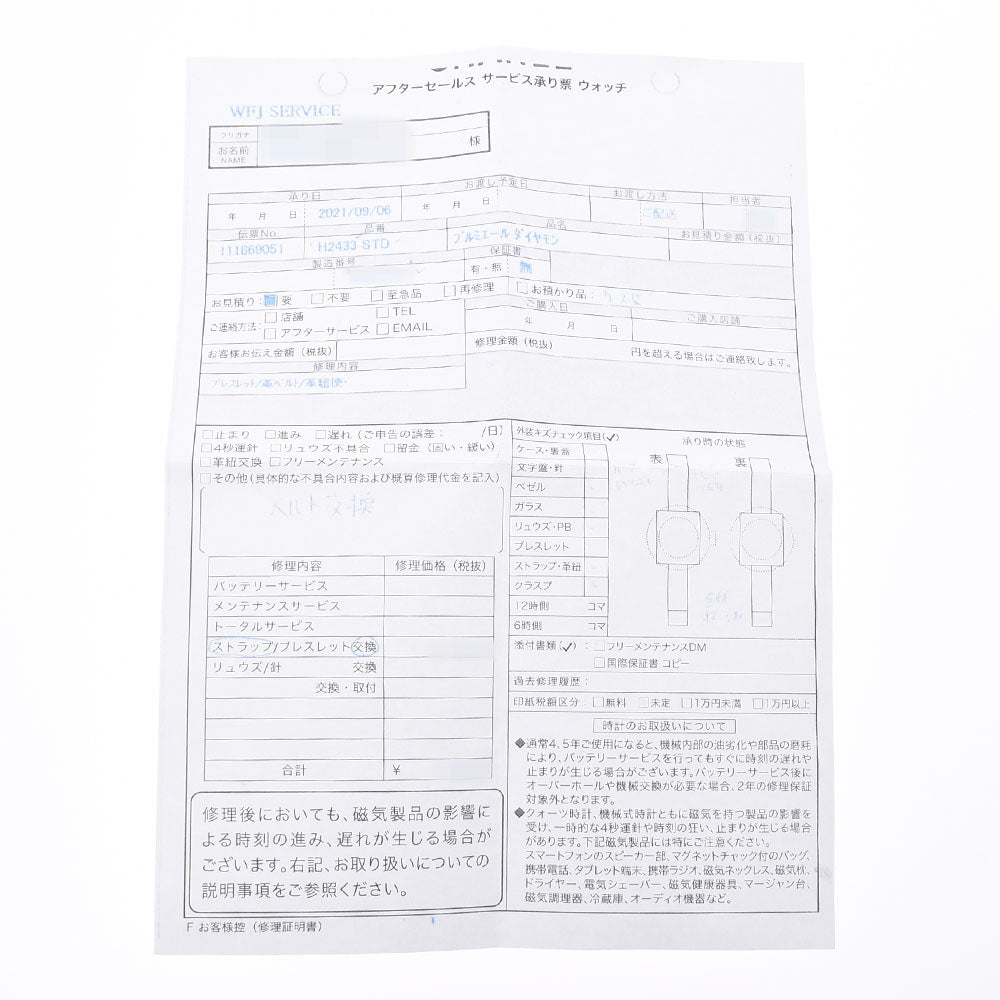 アフターセールス サービス承り票 ウォッチ
WFJ SERVICE
フリガナ
お名前
NAME
様
承り日 お渡し予定日 お渡し方法 担当者
年 月 日 2021/09/06 年 月 日 ご配送
伝票No. 品番 品名 お見積り金額(税抜)
111869051 H2433 STD プルミエール ダイヤモン
製造番号 保証書
有・無 無
お見積り: 要 不要 至急品 再修理 お預かり品:
ご連絡方法: 店舗 TEL ご購入日 ご購入店舗
アフターサービス EMAIL 年 月 日
お客様お伝え金額(税抜) 修理金額(税抜) 円を超える場合はご連絡致します。
修理内容
ブレスレット/革ベルト/革紐使
止まり 進み 遅れ(ご申告の誤差: /日)
4秒運針 リュウズ不具合 留金(固い・緩い)
革紐交換 フリーメンテナンス
その他(具体的な不具合内容および概算修理代金を記入)
ベルト交換
修理内容 修理価格(税抜)
バッテリーサービス
メンテナンスサービス
トータルサービス
ストラップ/ブレスレット交換
リュウズ/針 交換
交換・取付
合計 ¥
修理後においても、磁気製品の影響に
よる時刻の進み、遅れが生じる場合が
ございます。右記、お取り扱いについての
説明事項をご参照ください。
F お客様控(修理証明書)
外装キズチェック項目(✓) 承り時の状態
ケース・裏蓋 表 裏
文字盤・針
ベゼル
ガラス
リュウズ・PB
ブレスレット
ストラップ・革紐
クラスプ
12時側 コマ
6時側 コマ
添付書類(✓): フリーメンテナンスDM
国際保証書 コピー
過去修理履歴:
印紙税額区分: 無料 未定 1万円未満 1万円以上
時計のお取扱いについて
◆通常4、5年ご使用になると、機械内部の油劣化や部品の磨耗
により、バッテリーサービスを行ってもすぐに時刻の遅れや
止まりが生じる場合がございます。バッテリーサービス後に
オーバーホールや機械交換が必要な場合、2年の修理保証
対象外となります。
◆クォーツ時計、機械式時計ともに磁気を持つ製品の影響を
受け、一時的な4秒運針や時刻の狂い、止まりが生じる場合
があります。下記磁気製品には特にご注意ください。
スマートフォンのスピーカー部、マグネットチャック付のバッグ、
携帯電話、タブレット端末、携帯ラジオ、磁気ネックレス、磁気枕、
ドライヤー、電気シェーバー、磁気健康器具、マージャン台、
磁気調理器、冷蔵庫、オーディオ機器など。